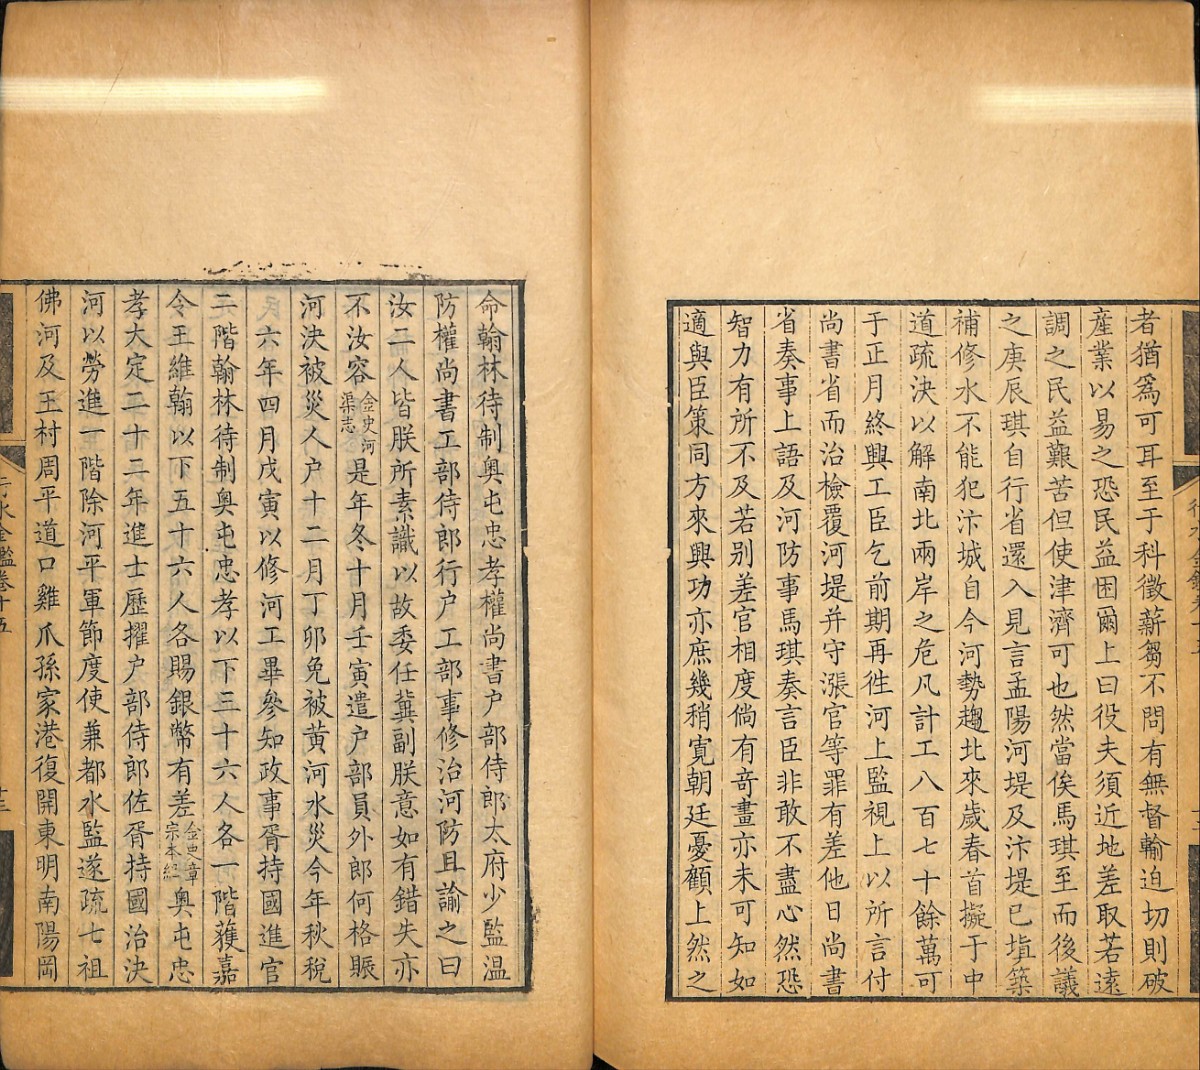 者猶爲可耳至于科徵薪芻不問有無督輸迫切則破
產業以易之恐民益困爾上曰役夫須近地差取若遠
調之民益艱苦但使津濟可也然當俟馬琪至而後議
之庚辰琪自行省還入見言孟陽河堤及汴堤已塡築
補修水不能犯汴城自今河勢趨北來歲春首擬于中
道疏決以解南北兩岸之危凡計工八百七十餘萬可
于正月終興工臣乞前期再徃河上監視上以所言付
尚書省而治檢覆河堤并守漲官等罪有差他日尚書
省奏事上語及河防事馬琪奏言臣非敢不盡心然恐
智力有所不及若别差官相度倘有奇畫亦未可知如
適與臣策同方來興功亦庶幾稍寬朝廷憂顧上然之
命翰林待制奧屯忠孝權尚書户部侍郎太府少監溫
防權尚書工部侍郎行户工部事修治河防且諭之曰
汝二人皆朕所素識以故委任冀副朕意如有錯失亦
不汝容金史河渠志是年冬十月壬寅遣户部員外郎何格賑
河決被災人户十二月丁卯免被黄河水災今年秋稅
六年四月戊寅以修河工畢參知政事胥持國進官
二階翰林待制奧屯忠孝以下三十六人各一階蒦嘉
令王維翰以下五十六人各賜銀幣有差金史章宗本紀奧屯忠
孝大定二十二年進士歷擢户部侍郎佐胥持國治決
河以勞進一階除河平軍節度使兼都水監遂疏七祖
佛河及王村周平道口雞爪孫家港復開東明南陽岡
行水金鑑卷十五